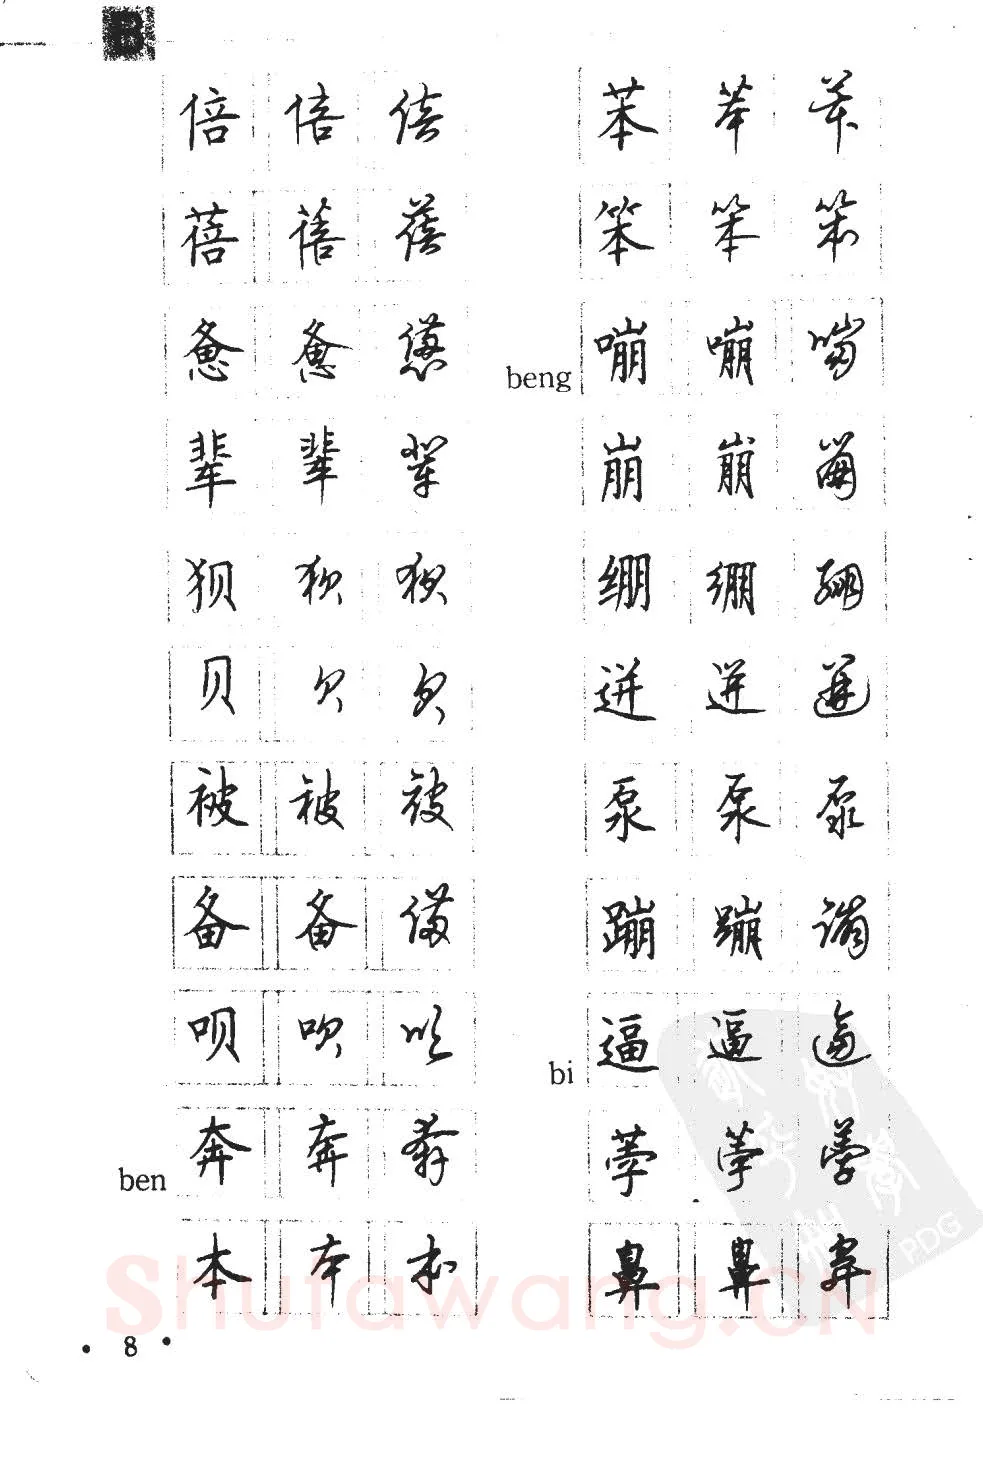 B
倍 倍 倍
蓓 蓓 蓓
惫 惫 憊
辈 辈 辈
狈 狈 狈
贝 贝 贝
被 被 被
备 备 備
呗 呗 呗
ben 奔 奔 奔
本 本 本
苯 苯 苯
笨 笨 笨
beng 嘣 嘣 嘣
崩 崩 崩
绷 绷 绷
迸 迸 迸
泵 泵 泵
蹦 蹦 蹦
bi 逼 逼 逼
荸 荸 荸
鼻 鼻 鼻
PDG
Shufawang.CN
• 8 •